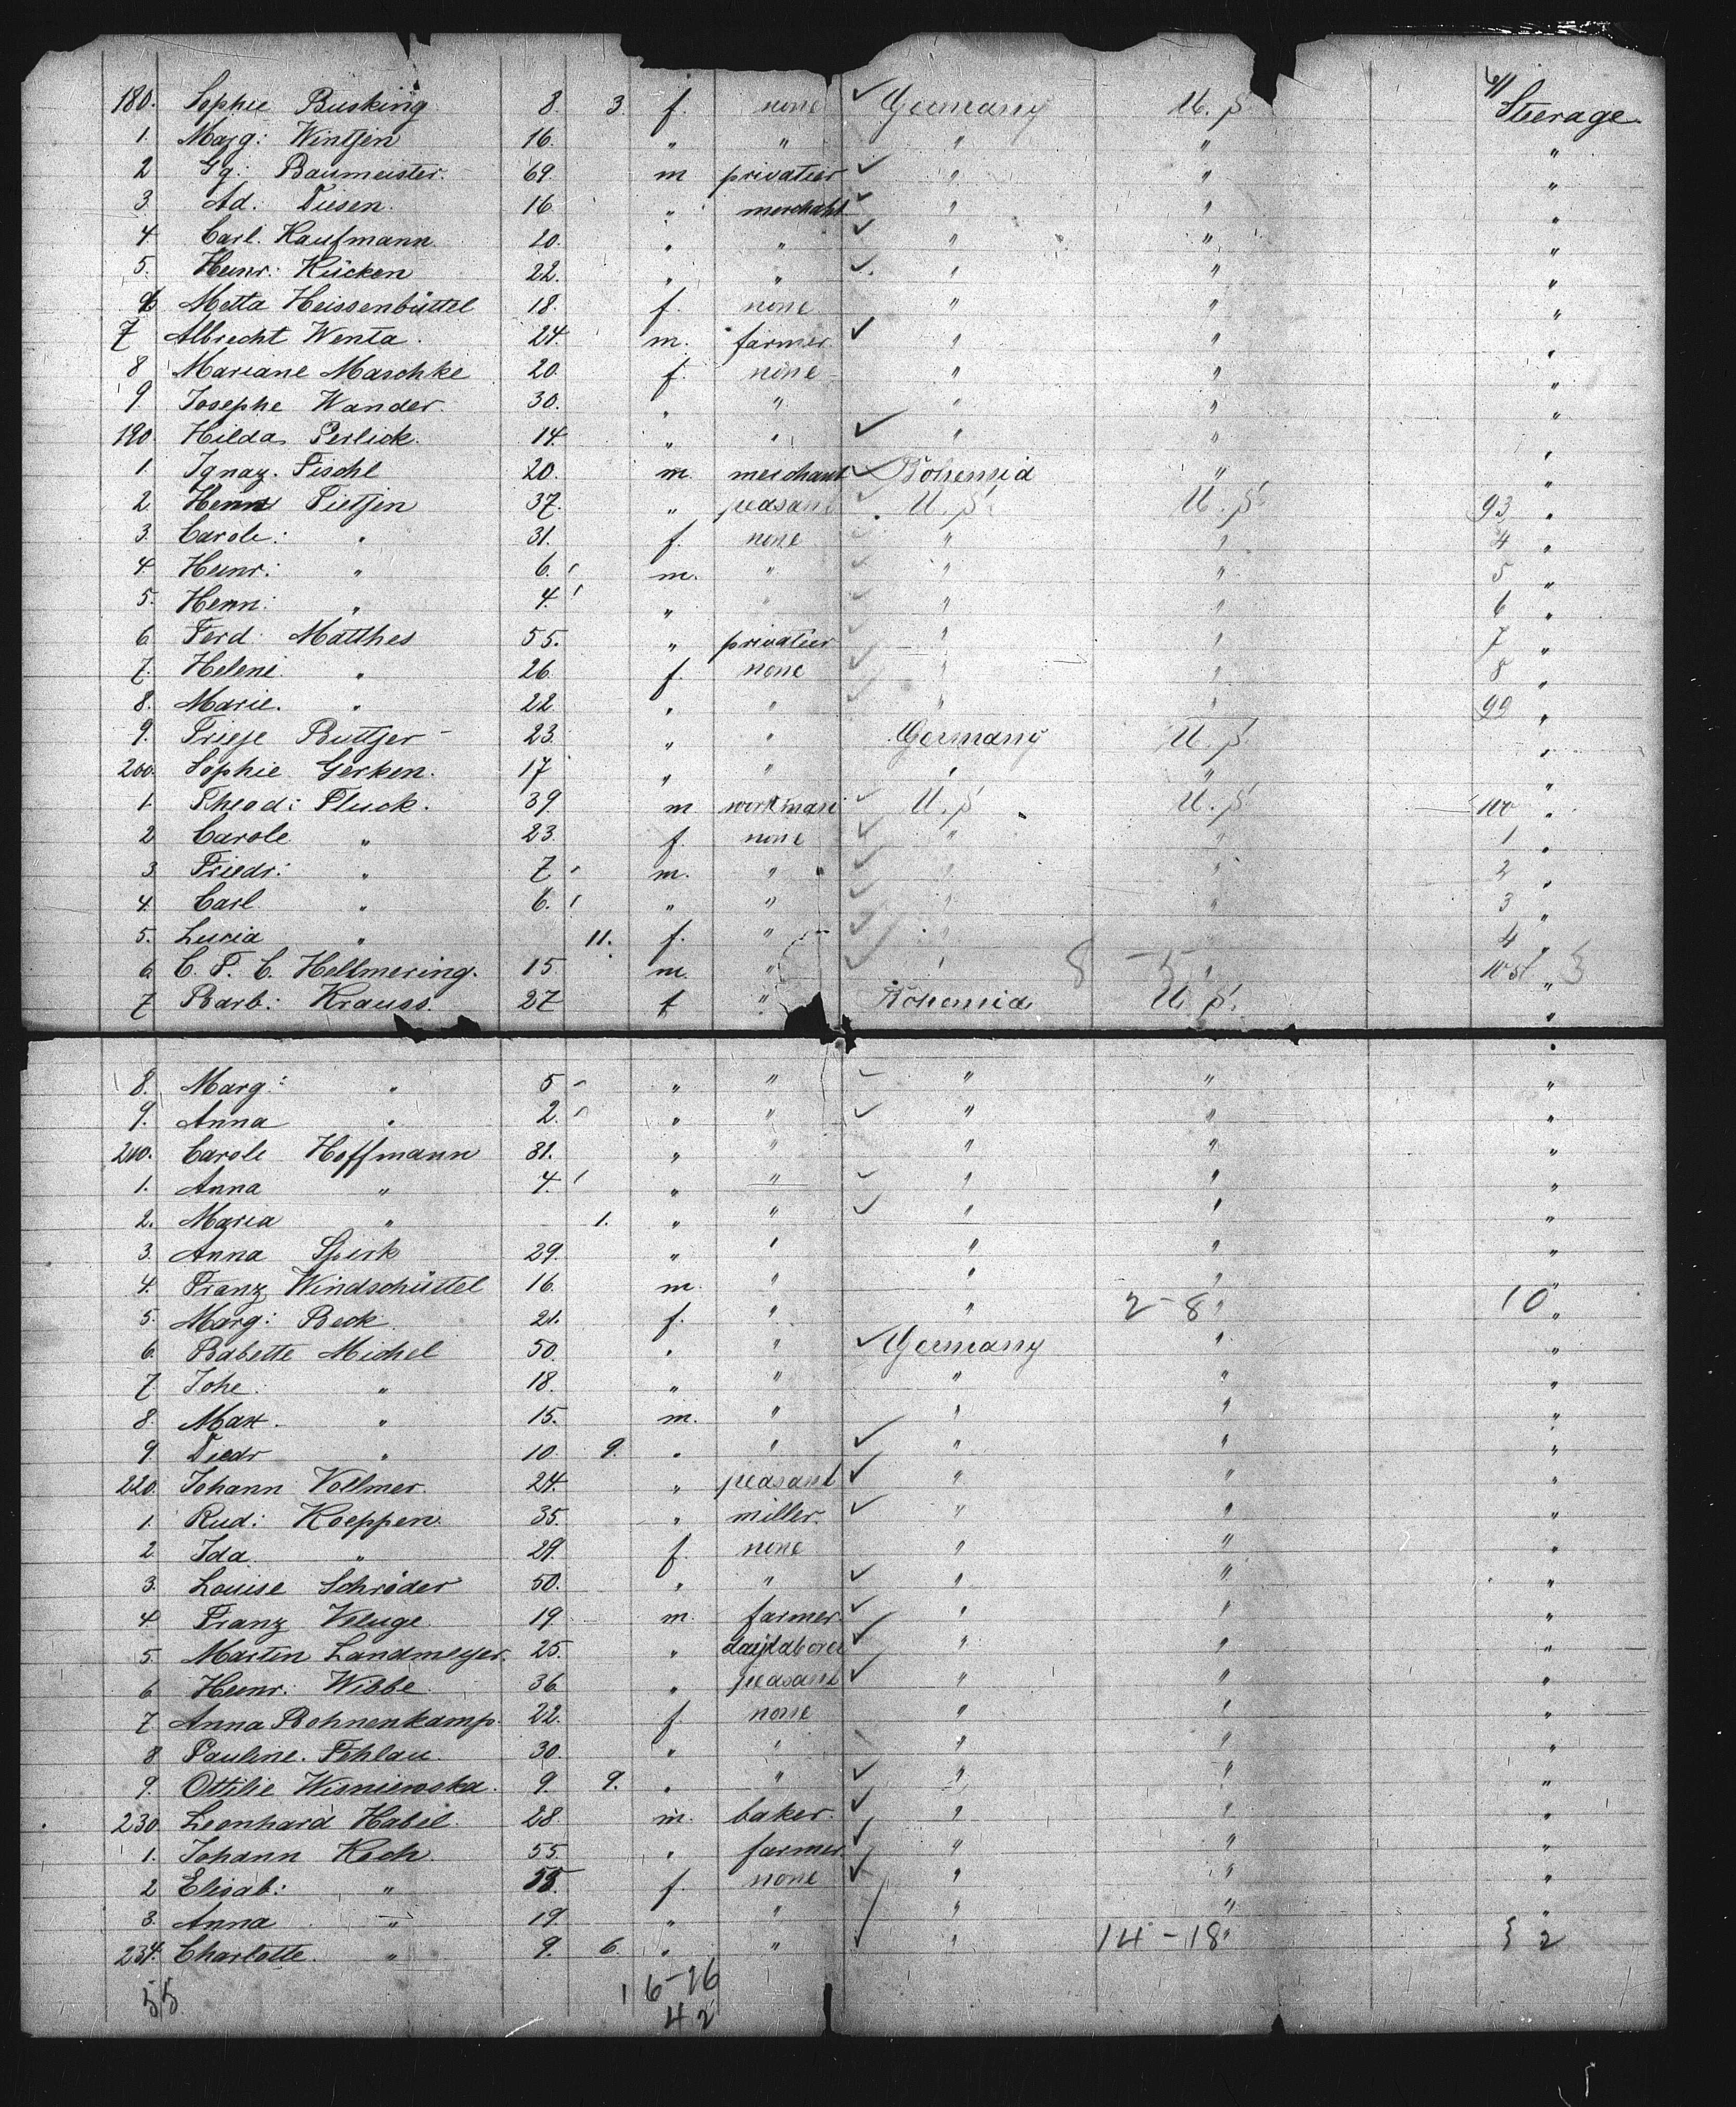 41
180. Sophie Busking 8. 3. f. none ✓ Germany U. S. Steerage
1. Marg: Wintjen 16. " " " " "
2 Gg: Baumeister. 69. m privatier ✓ " " "
3. Ad. Diesen. 16. " merchant ✓ " " "
4 Carl. Kaufmann 20. " " ✓ " " "
5. Heinr: Kücken 22. " " ✓ " " "
6 Metta Heissenbüttel 18. f. none " " "
7 Albrecht Wenta. 24. m. farmer. ✓ " " "
8 Mariane Maschke 20. f. none " " "
9 Josephe Wander. 30. " " " " "
190. Hilda Perlick. 14. " " ✓ " " "
1. Ignaz. Fischl 20. m. merchant ✓ Bohemia " "
2. Henn Tietjen 37. " peasant ✓ U. S. U. S. 93 "
3. Carole: " 31. f. none ✓ " " 4 "
4. Heinr: " 6. m. " ✓ " " 5 "
5. Henn: " 4. " " ✓ " " 6 "
6. Ferd. Matthes 55. " privatier ✓ " " 7 "
7. Helene. " 26. f. none ✓ " " 8 "
8. Marie. " 22 " " ✓ " " 99 "
9. Trieje Buttjer 23. " " Germany U. S. "
200. Sophie Gerken. 17 " " " " "
1. Theod: Pluck. 39. m workman ✓ U. S. U. S. 100 "
2 Carole " 23. f. none ✓ " " 1 "
3. Friedr: " 7 m. " ✓ " " 2 "
4. Carl " 6. " " ✓ " " 3 "
5. Lucia " 11. f. " ✓ " " 4 "
6. C. F. C. Hellmering. 15 m. " ✓ " 8 - 5 " "
7 Barb: Krauss. 27 f " Bohemia U. S. "
8. Marg: " 5 " " ✓ " " "
9. Anna " 2. " " ✓ " " "
210. Carole Hoffmann 31. " " " " "
1. Anna " 4. " " ✓ " " "
2. Maria " 1. " " ✓ " " "
3. Anna Spirk 29. " " " " "
4. Franz Windschüttel 16. m. " " " "
5. Marg: Beck 21. f. " " 2-8 " 10 "
6. Babette Michel 50. " " ✓ Germany " "
7. Johe: " 18. " " " " "
8. Max. " 15. m. " " " "
9. Diedr " 10. 9. " " ✓ " " "
220. Johann Vollmer. 24. " peasant ✓ " " "
1. Rud: Koeppen. 35. " miller. ✓ " " "
2. Ida. " 29. f. none " " "
3. Louise Schröder 50. " " ✓ " " "
4. Franz Kluge. 19. m. farmer. ✓ " " "
5. Martin Landmeyer. 25. " daylaborer ✓ " " "
6. Heinr. Wibbe. 36. " peasant ✓ " " "
7. Anna Bohnenkamp. 22. f. none " " "
8 Pauline. Fehlau. 30. " " " " "
9. Ottilie Wisniewska. 9. 9. " " ✓ " " "
230 Leonhard Habel. 28. m. baker. ✓ " " "
1. Johann Koch. 55. " farmer. ✓ " " "
2. Elisab: " 55. f. none ✓ " " "
3. Anna " 19. " " " " "
234. Charlotte. " 9. 6. " " ✓ " 14-18 " 32
55 16-26
42